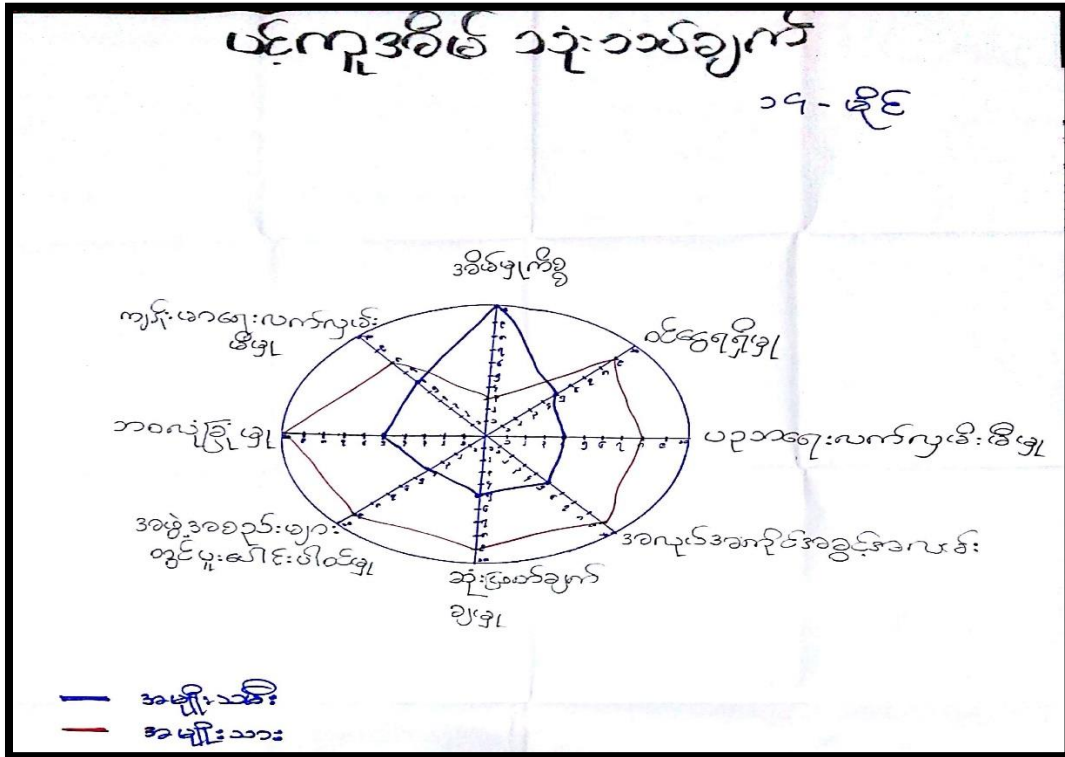 ပင့်ကူအိမ် သုံးသပ်ချက်
၁၅ - မိုင်
အိမ်မှုကိစ္စ
ဝင်ငွေရရှိမှု
ပညာရေးလက်လှမ်းမီမှု
အလုပ်အကိုင်အခွင့်အလမ်း
ဆုံးဖြတ်ချက်
ချမှု
အဖွဲ့အစည်းများ
တွင်ပူးပေါင်းပါဝင်မှု
ဘဝလုံခြုံမှု
ကျန်းမာရေးလက်လှမ်း
မီမှု
အမျိုးသမီး
အမျိုးသား